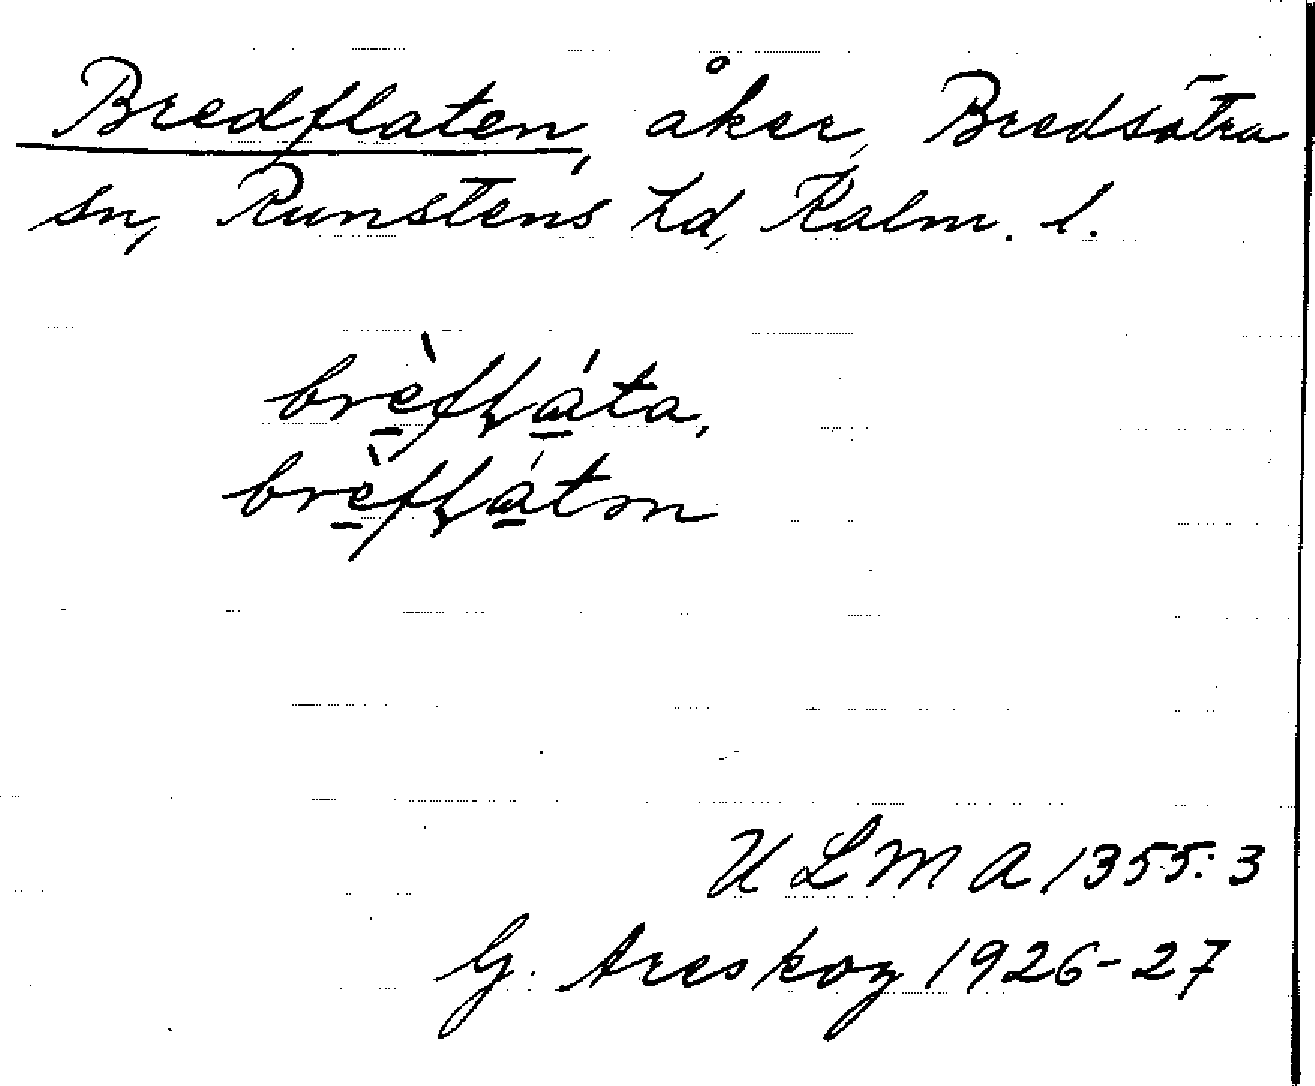 Bredflaten, åker, Bredsätra
sn, Runstens hd, Kalm. l.
brè̱fɫá̱ta,
brè̱fɫá̱tṇ
U L M A 1355:3
G. Areskog 1926-27